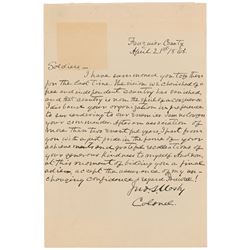 Fauquier County
April 21st 1865.
Soldiers —
I have summoned you together
for the last time. The vision we cherished of a
free and independent country has vanished,
and that country is now the spoil of a conqueror.
I disband your organization in preference
to surrendering to our enemies. I am no longer
your commander. After an association of
more than two eventful years, I part from
you with a just pride in the fame of your
achievements and grateful recollections of
your generous kindness to myself. And now,
at this moment of bidding you a final
adieu, accept the assurance of my un-
changing confidence & regard. Farewell!
Jno. S. Mosby
Colonel.